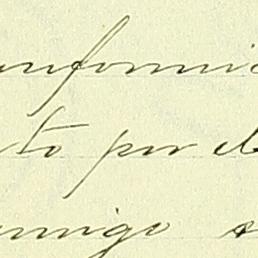 onformi
to por el
amigo s